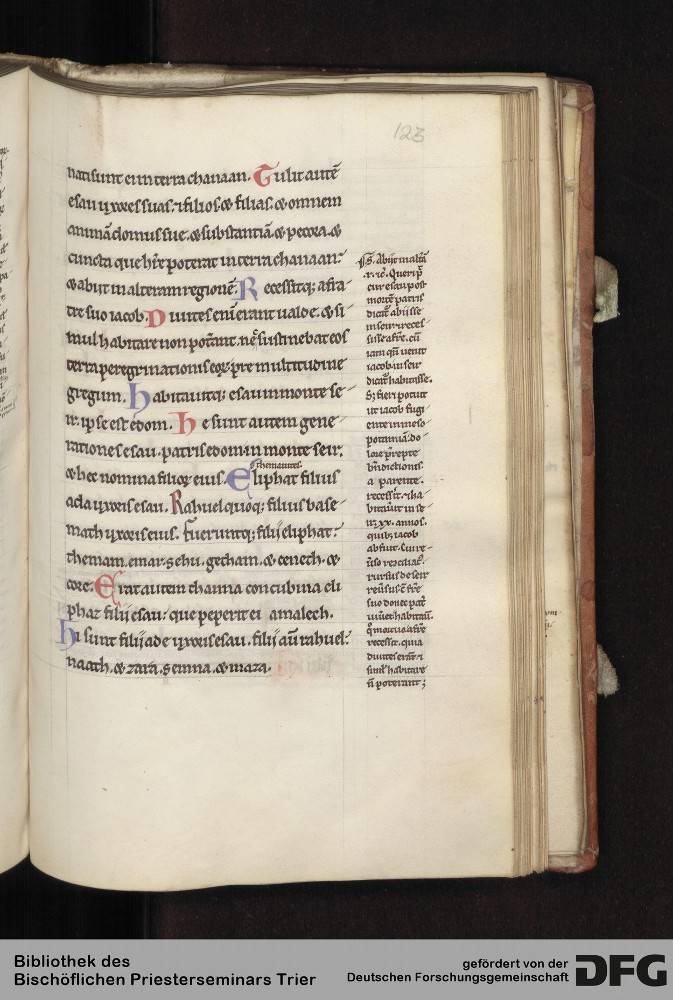 123
nati sunt ei in terra chanaan. Tulit autē
esau uxores suas. ⁊ filios. & filias. & omnem
animā domus sue. & substantiā. & pecora. &
cuncta que hr̄e poterat in terra chanaan:
& abiit in alteram regionē. Recessitq; a fra-
tre suo iacob. Diuites eni erant ualde. & si-
mul habitare non poterant. nec sustinebat eos
terra peregrinationis eoꝝ. pre multitudine
gregum. habitauitq; esau in monte se-
ir. ipse est edom. He sunt autem gene-
rationes esau. patris edom in monte seir.
& hec nomina filioꝝ eius. Eliphat filius
ada uxoris esau. Rahuel quoq; filius base-
math uxoris eius. Fueruntq; filij eliphat:
themam. emar. sehu. gecham. & cenech. &
core. Erat autem thanna concubina eli
phaz filij esau: que peperit ei amalech.
Hi sunt filij ade uxoris esau. filij aū rahuel:
naath. & zara. Semna. & maza.
themanites
Abijt in alterā
r. ⁊c. Querit̄
cur esau post
mortē patris
dicat̄ abiisse
in seir. ⁊ reces-
sisse a fr̄e. cū
iam qn̄ uenit
iacob in seir
dicat̄ habitasse.
S; fieri potuit
ut iacob fugi
ente in meso
potamiā. do-
lore p̄repte
bn̄dictionis
a parente.
recessit. ⁊ ha-
bitauit in se
ir. xx. annos.
quib; iacob
abfuit. Cui re-
uerso reconciliat̄.
rursus de seir
reuersus ē. fr̄e
suo donec pater
uiueret habitau.
quo mortuo a fr̄e
recessit. quia
diuites erant. ⁊
simul habitare
n̄ poterant;
Bibliothek des
Bischöflichen Priesterseminars Trier
gefördert von der
Deutschen Forschungsgemeinschaft
DFG